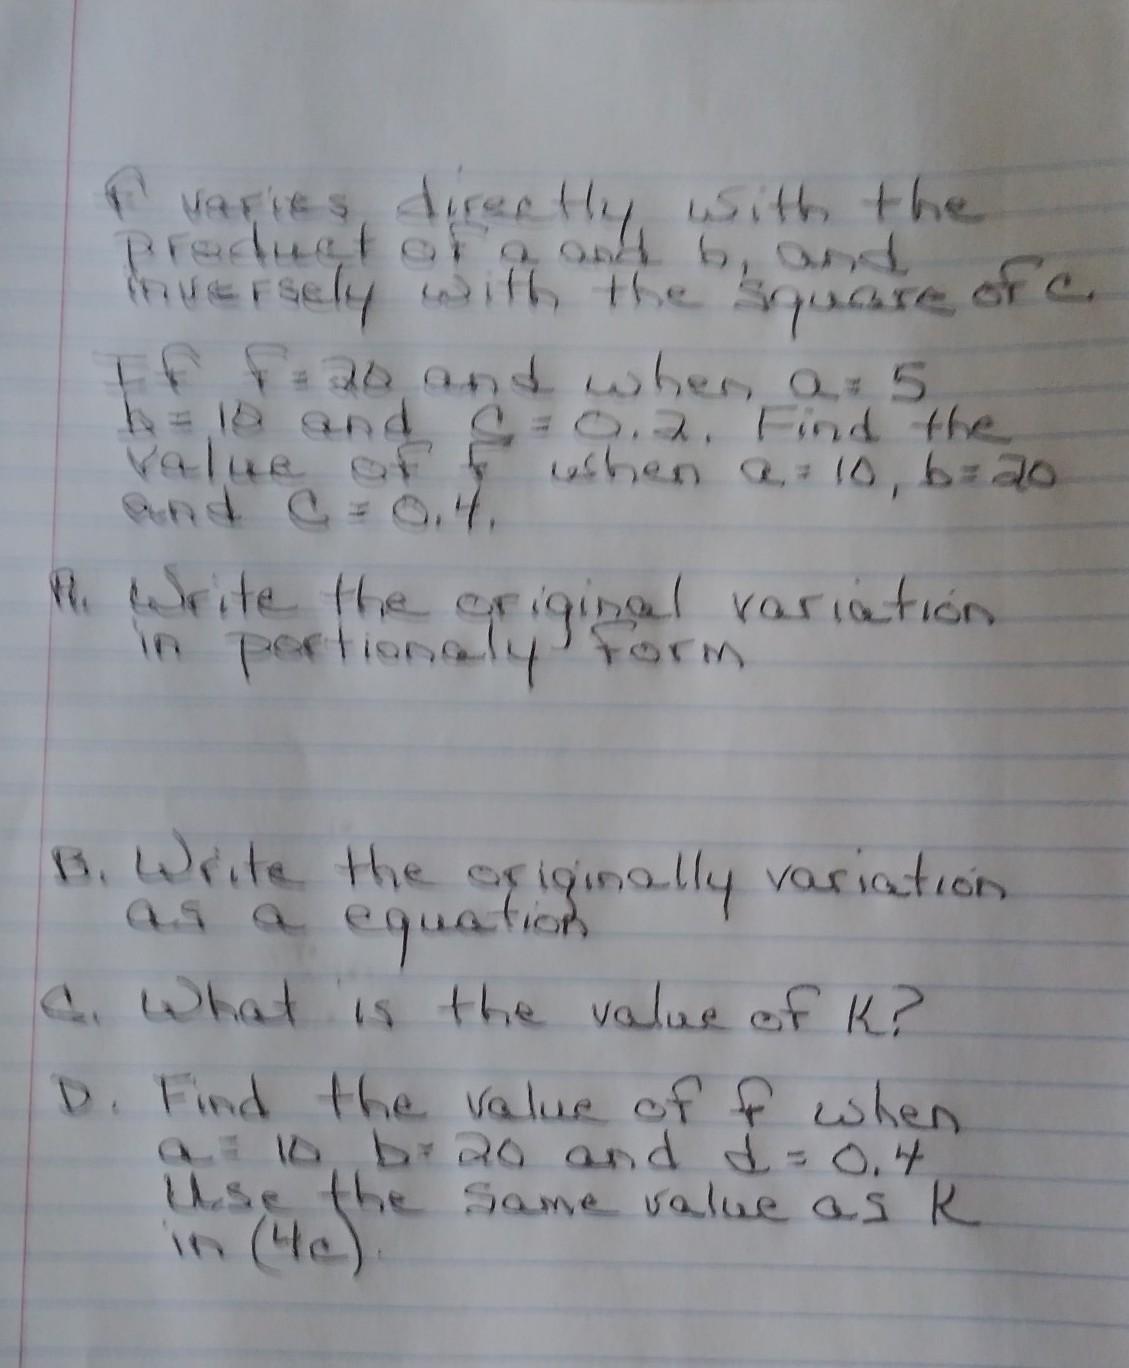 f varies directly with the
product of a and b, and
inversely with the square of c.
If f=20 and when a=5
b=10 and C=0.2. Find the
value of f when a=10, b=20
and C=0.4.
A. Write the original variation
in portionaly form
B. Write the originally variation
as a equation
C. What is the value of K?
D. Find the value of f when
a=10 b=20 and d=0.4
Use the same value as K
in (4c).